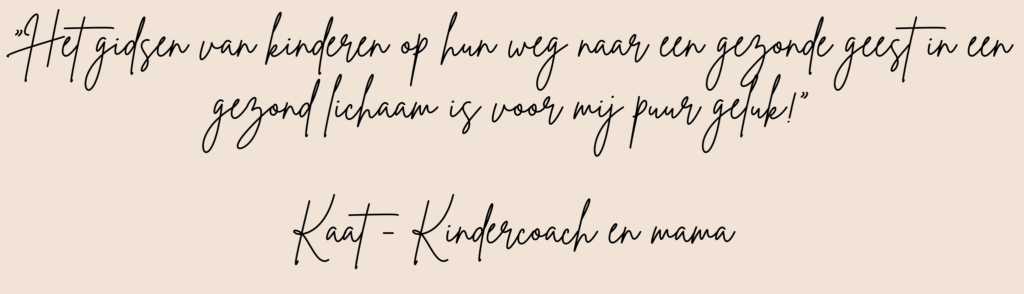 "Het gidsen van kinderen op hun weg naar een gezonde geest in een
gezond lichaam is voor mij puur geluk!"
Kaat - Kindercoach en mama